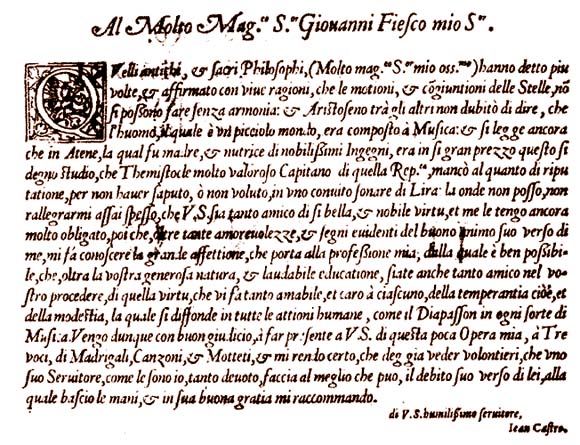 Al Molto Mag.co S.or Giouanni Fiesco mio S.or.
Quelli antichi, & sacri Philosophi, (Molto mag.co S.or mio oss.mo) hanno detto piu
volte, & affirmato con viue ragioni, che le motioni, & cõgiuntioni delle Stelle, nõ
si possono fare senza armonia: & Aristoseno trà gli altri non dubitò di dire, che
l'huomo, il quale è vn picciolo mondo, era composto à Musica: & si legge ancora
che in Atene, la qual fu madre, & nutrice di nobilissimi Ingegni, era in si gran prezzo questo si
degno studio, che Themistocle molto valoroso Capitano di quella Rep.ca, mancò al quanto di ripu
tatione, per non hauer saputo, ò non voluto, in vno conuito sonare di Lira: la onde non posso, non
rallegrarmi assai spesso, che V.S. sia tanto amico di si bella, & nobile virtu, et me le tengo ancora
molto obligato, poi che, oltre tante amoreuolezze, & segni euidenti del buono animo suo verso di
me, mi fa conoscere la grande affettione, che porta alla professione mia; dalla quale è ben possibi-
le, che, oltra la vostra generosa natura, & laudabile educatione, siate anche tanto amico nel vo-
stro procedere, di quella virtu, che vi fà tanto amabile, et caro à ciascuno, della temperantia cioè, et
della modestia, la quale si diffonde in tutte le attioni humane, come il Diapasson in ogni sorte di
Musica. Vengo dunque con buon giudicio, à far presente a V.S. di questa poca Opera mia, à Tre
voci, di Madrigali, Canzoni, & Motteti, & mi rendo certo, che deggia veder volontieri, che vno
suo Seruitore, come le sono io, tanto deuoto, faccia al meglio che puo, il debito suo verso di lei, alla
quale bascio le mani, & in sua buona gratia mi raccommando.
di V.S. humilissimo seruitore,
Iean Castro.